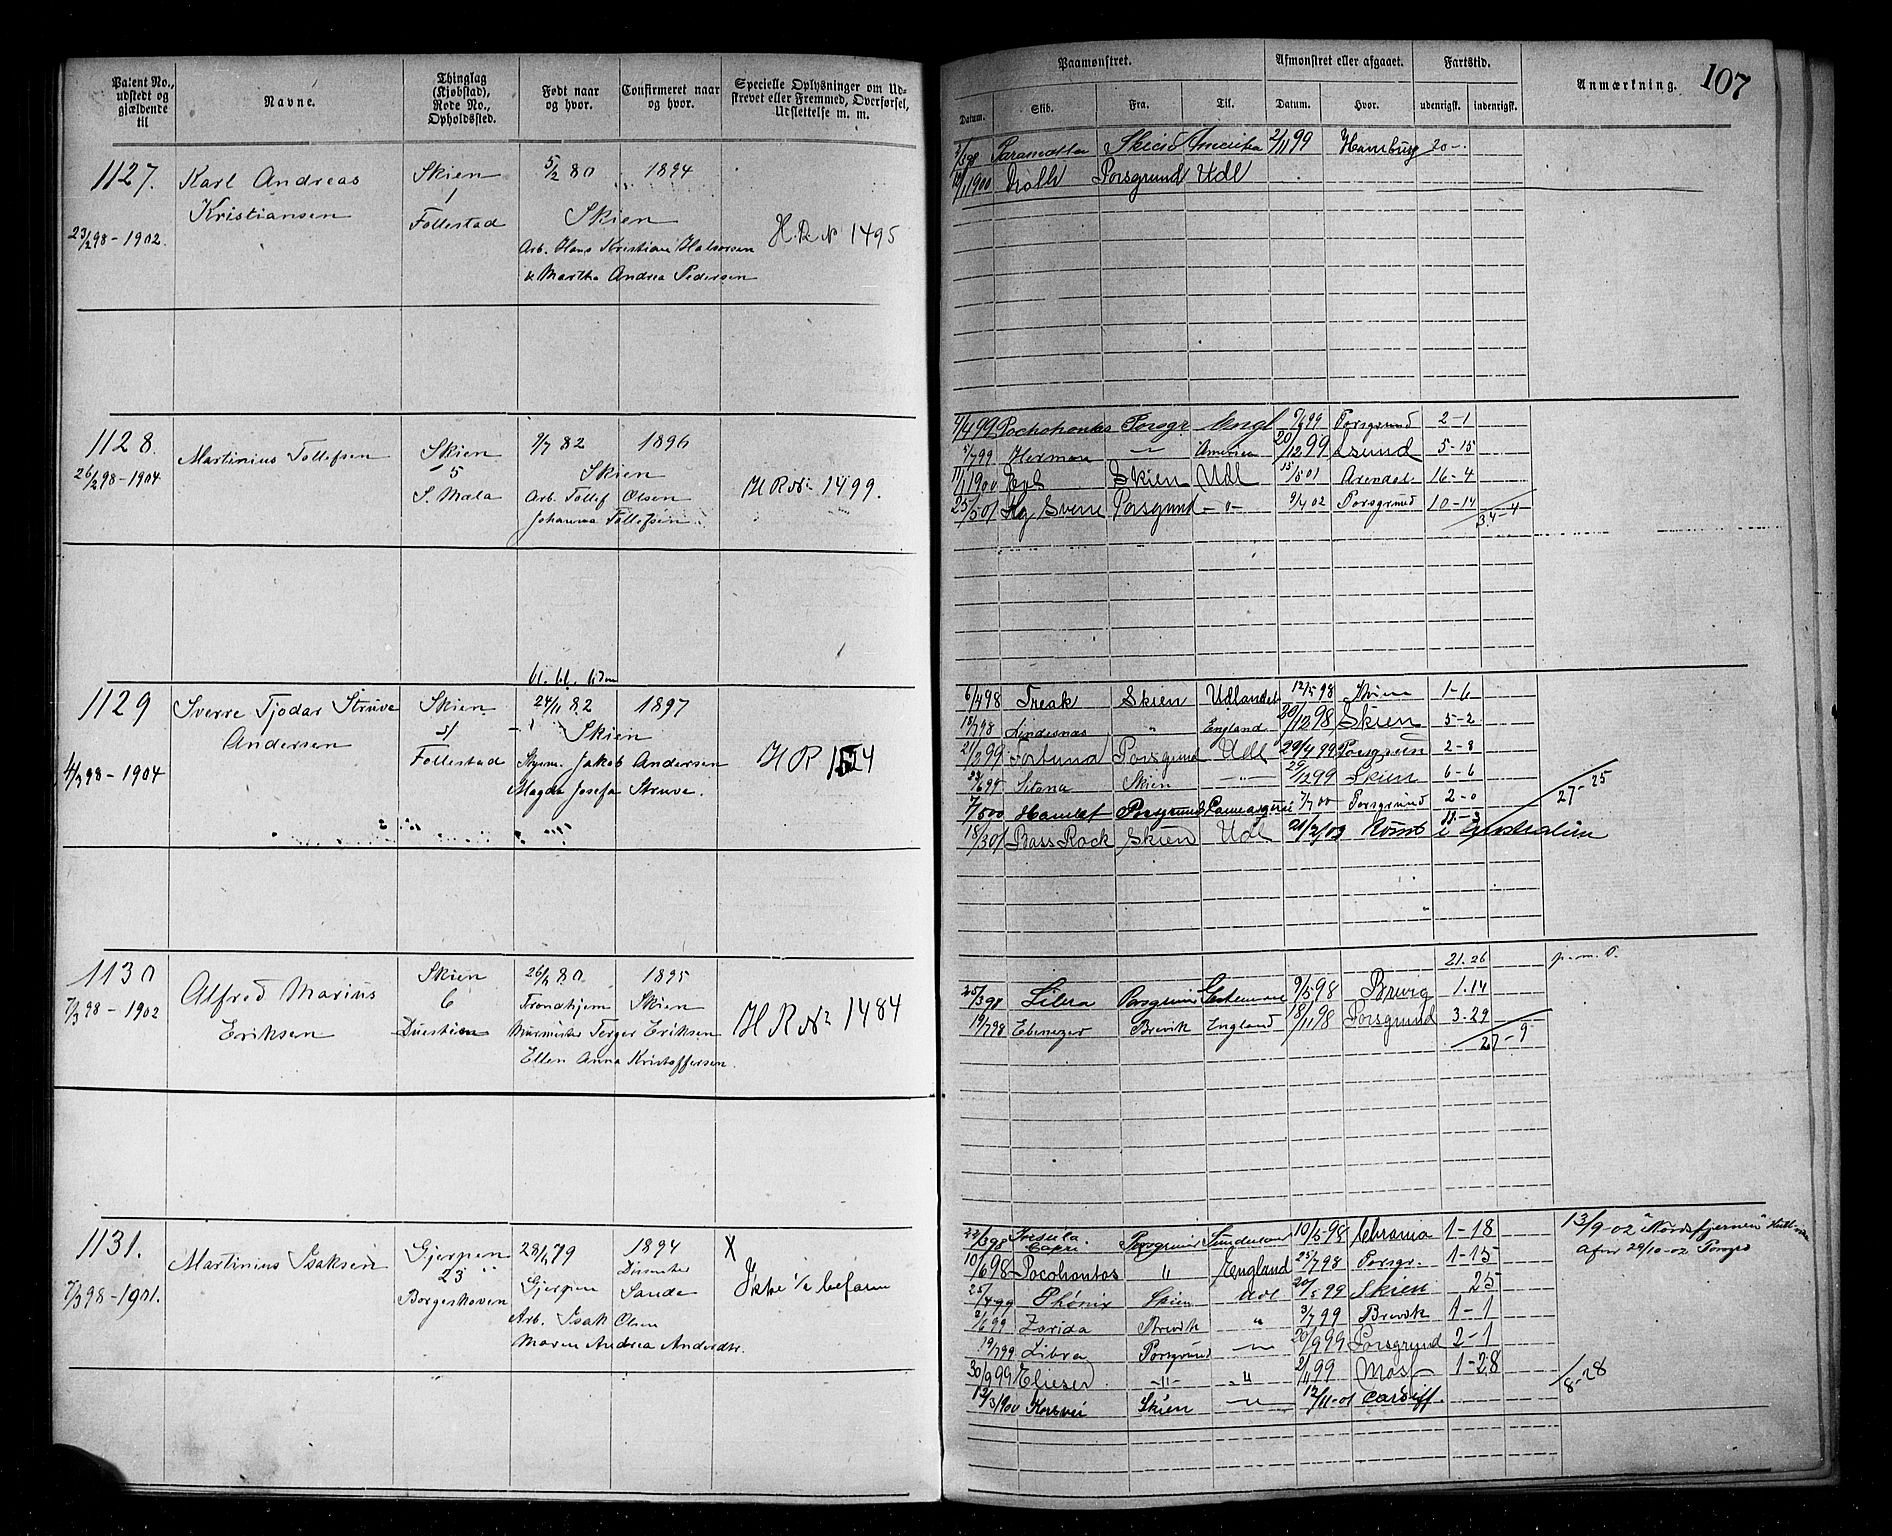 Patent No., udstedt og gjældende til
Navne.
Thinglag (Kjøbstad), Rode No., Opholdssted.
Født naar og hvor.
Confirmeret naar og hvor.
Specielle Oplysninger om Udstrevet eller Fremmed, Overførsel, Udslettelse m. m.
1127.
23/2 98 - 1902.
Karl Andreas
Kristiansen
Skien
1
Follestad
5/2 80 1894
Skien
Arb. Hans Kristian Halvorsen
& Martha Andrea Pedersen
H. R. № 1495
1128.
26/2 98 - 1904
Martinius Tollefsen
Skien
5
S. Mæla
9/7 82 1896
Skien
Arb. Tollef Olsen
Johanna Tollefsen
H R № 1499.
1129
4/3 98 - 1904
Sverre Tjodar Struve
Andersen
Skien
Follestad
24/11 82 1897
Skien
Jakob Andersen
Magda Josefa Struve.
H R
1130
7/3 98 - 1902
Alfred Marius
Eriksen
Skien
6
26/2 80 1895
Trondhjem Skien
Murmester Terger Eriksen
Ellen Anna Kristoffersen.
H R № 1484
1131.
7/3 98 - 1901.
Martinius Isaksen
Gjerpen
23
Borgeskoven
28/1 79 1894
Gjerpen Sande
Arb. Isak Olsen
Maren Andrea Andersdtr.
X
Ikke befaren
107
Paamønstret.
Afmønstret eller afgaaet.
Fartstid.
Anmærkning.
Datum. Skib. Fra. Til. Datum. Hvor. udenrigsk. indenrigsk.
Paramatta Skien Amerika 2/11 99 Hamburg 20 -
1900 Porsgrund Udl
4/4 99 Pochohontas Porsgr. Engl 99 Porsgrund 2 - 1
5/7 99 Hermon - Amerika 20/12 99 5 - 15
1900 Skien Udl 15/5 01 Arendal 16 - 4
25/5 01 Kg Sverre Porsgrund - " - 9/4 02 Porsgrund 10 - 14
34 - 4
6/4 98 Freak Skien Udlandet 12/5 98 1 - 6
18/7 98 Lindesnæs " England 20/12 98 Skien 5 - 2
21/2 99 Fortuna Porsgrund Udl 29/4 99 Porsgrun 2 - 8
Sitona Skien - " - 29/12 99 Skien 6 - 6
27 - 25
Hamlet Porsgrund 7/7 00 Porsgrund 2 - 0
18/3 01 Bass Rock Skien Udl 21/2 03 Rømt i Australien
21.26
p.m. O.
25/3 98 Libra Porsgrund 9/5 98 Brevig 1.14
19/7 98 Ebenezer Brevik England 18/11 98 Porsgrund 3 - 29
27 - 9
22/3 98 Capri Porsgrund Sunderland 10/5 98 Chrania 1 - 18
13/9 - 02 "Nordstjernen"
10/6 98 Pocohontas " England 25/7 98 Porsgr. 1 - 15
Afm 29/10 - 02
25/4 99 Phønix Skien Udl 20/5 99 Skien 25
2/6 99 Zorida Brevik " 3/7 99 Brevik 1 - 1
19/7 99 Libra Porsgrund - " - 20/9 99 Porsgrund 2 - 1
30/9 99 Elieser - " - - " - 2/11 99 Moss 1 - 28
8 - 28
12/3 1900 Korsvei Skien - " - 12/11 - 01 Cardiff